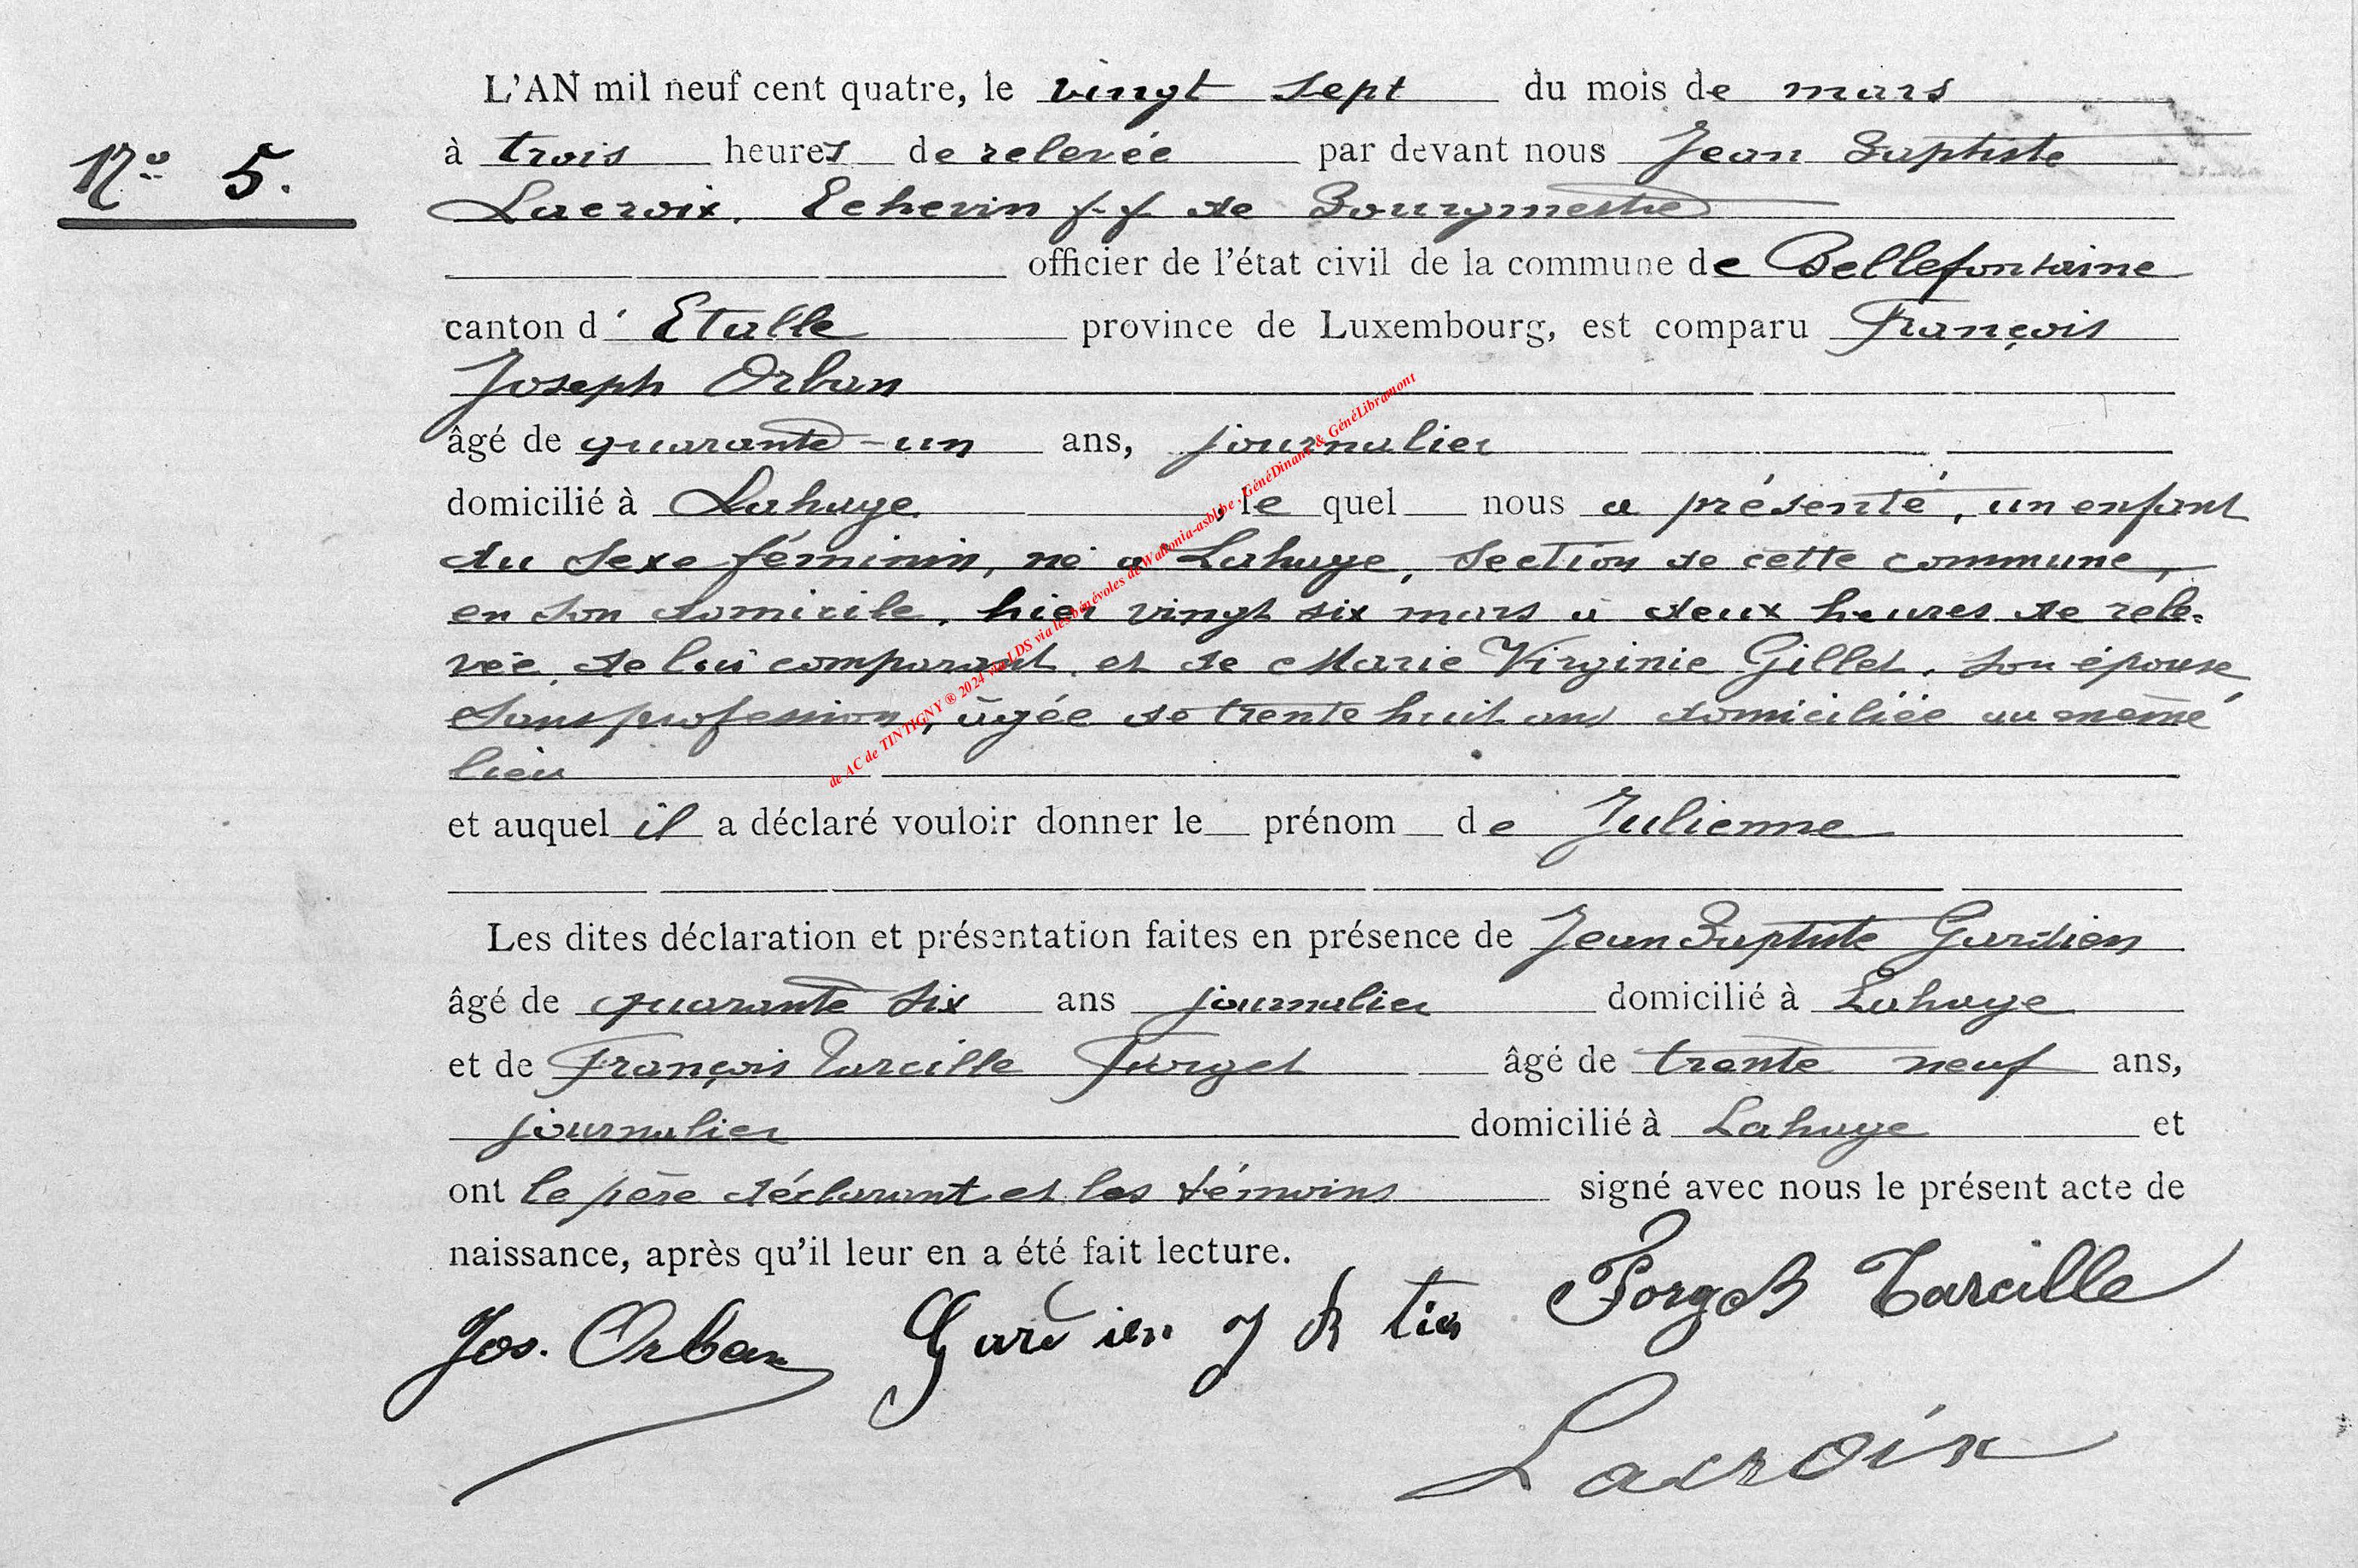 L'AN mil neuf cent quatre, le vingt sept du mois de mars
N° 5.
à trois heures de relevée par devant nous Jean Baptiste
Lacroix, Echevin f.f. de Bourgmestre
officier de l'état civil de la commune de Bellefontaine
canton d' Etalle province de Luxembourg, est comparu François
Joseph Orban
âgé de quarante-un ans, journalier
domicilié à Lahage, le quel nous a présenté, un enfant
du sexe féminin, né à Lahage, section de cette commune,
en son domicile, hier vingt six mars à deux heures de rele-
vée, de lui comparant, et de Marie Virginie Gillet, son épouse,
sans profession, âgée de trente huit ans domiciliée au même
lieu
et auquel il a déclaré vouloir donner le prénom de Julienne
Les dites déclaration et présentation faites en présence de Jean Baptiste Gardien
âgé de quarante six ans journalier domicilié à Lahage
et de François Tarcille Forget âgé de trente neuf ans,
journalier domicilié à Lahage et
ont le père déclarant et les témoins signé avec nous le présent acte de
naissance, après qu'il leur en a été fait lecture.
Jos. Orban Gardien J B tis Forget Tarcille
Lacroix
de AC de TINTIGNY ® 2024 via LDS via les bénévoles de Wallonia-asbl.be , GénéDinant & GénéLibramont